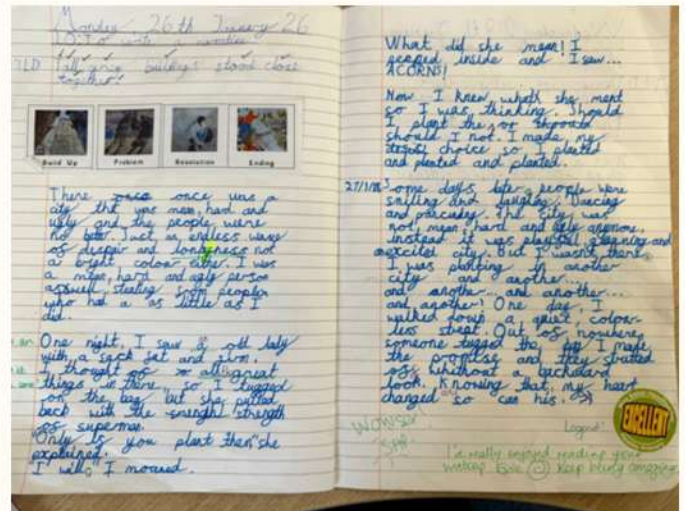 Monday 26th January 26
LO: To write a narrative
TLD Tall grey buildings stood close
together!
Build Up
Problem
Resolution
Ending
There once once was a
city tht was mean, hard and
ugly and the people were
no beter. Just an, endless wave
of despair and lonlyness not
a bright colour either. I was
a mean, hard and ugly person
aswell, stealing from people
who had a as little as I
did.
One night, I saw a old lady
with a sack fat and firm.
I thought of all great
things in there, so I tugged
on the bag but she pulled
back with the strenght strength
of superman.
"Only if you plant them" she
explained.
"I will," I moared.
What did she mean! I
peeped inside and I saw...
ACORNS!
Now I knew whath she ment
so I was thinking. Should
I plant the, or
should I not. I made my
choice so I planted
and planted and planted.
27/1/26 Some days later, people were
smiling and laughing. Dancing
and parcuing. The city was
not mean, hard and ugly anymore,
instead it was playful, gleaming and
excited city. But I wasn't there,
I was planting in another
city and another...
and another and another...
and another! One day, I
walked down a quiet colour-
less street. Out of nowhere,
someone tugged the bag I made
the promise and they strutted
off whithout a backward
look. Knowing that, my heart
changed and so can his.
Wowser!
Legend!
EXCELLENT
I'v really enjoyed reading your
writing Evie Keep being amazing